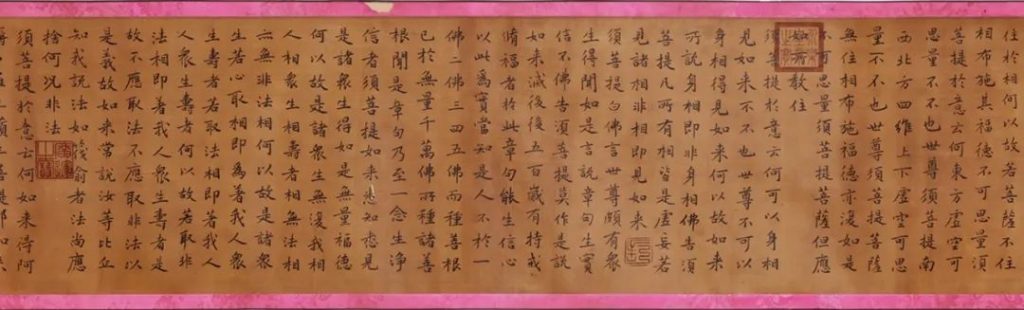 住於相何以故若菩薩不住
相布施其福德不可思量須
菩提於意云何東方虛空可
思量不不也世尊須菩提南
西北方四維上下虛空可思
量不不也世尊須菩提菩薩
無住相布施福德亦復如是
不可思量須菩提菩薩但應
如所教住
須菩提於意云何可以身相
見如來不不也世尊不可以
身相得見如來何以故如來
所說身相即非身相佛告須
菩提凡所有相皆是虛妄若
見諸相非相即見如來
須菩提白佛言世尊頗有衆
生得聞如是言說章句生實
信不佛告須菩提莫作是說
如來滅後後五百歲有持戒
脩福者於此章句能生信心
以此為實當知是人不於一
佛二佛三四五佛而種善根
已於無量千萬佛所種諸善
根聞是章句乃至一念生淨
信者須菩提如來悉知悉見
是諸衆生得如是無量福德
何以故是諸衆生無復我相
人相衆生相壽者相無法相
亦無非法相何以故是諸衆
生若心取相即為著我人衆
生壽者若取法相即著我人
衆生壽者何以故若取非
法相即著我人衆生壽者是
故不應取法不應取非法以
是義故如來常說汝等比丘
知我說法如筏喻者法尚應
捨何況非法
須菩提於意云何如來得阿